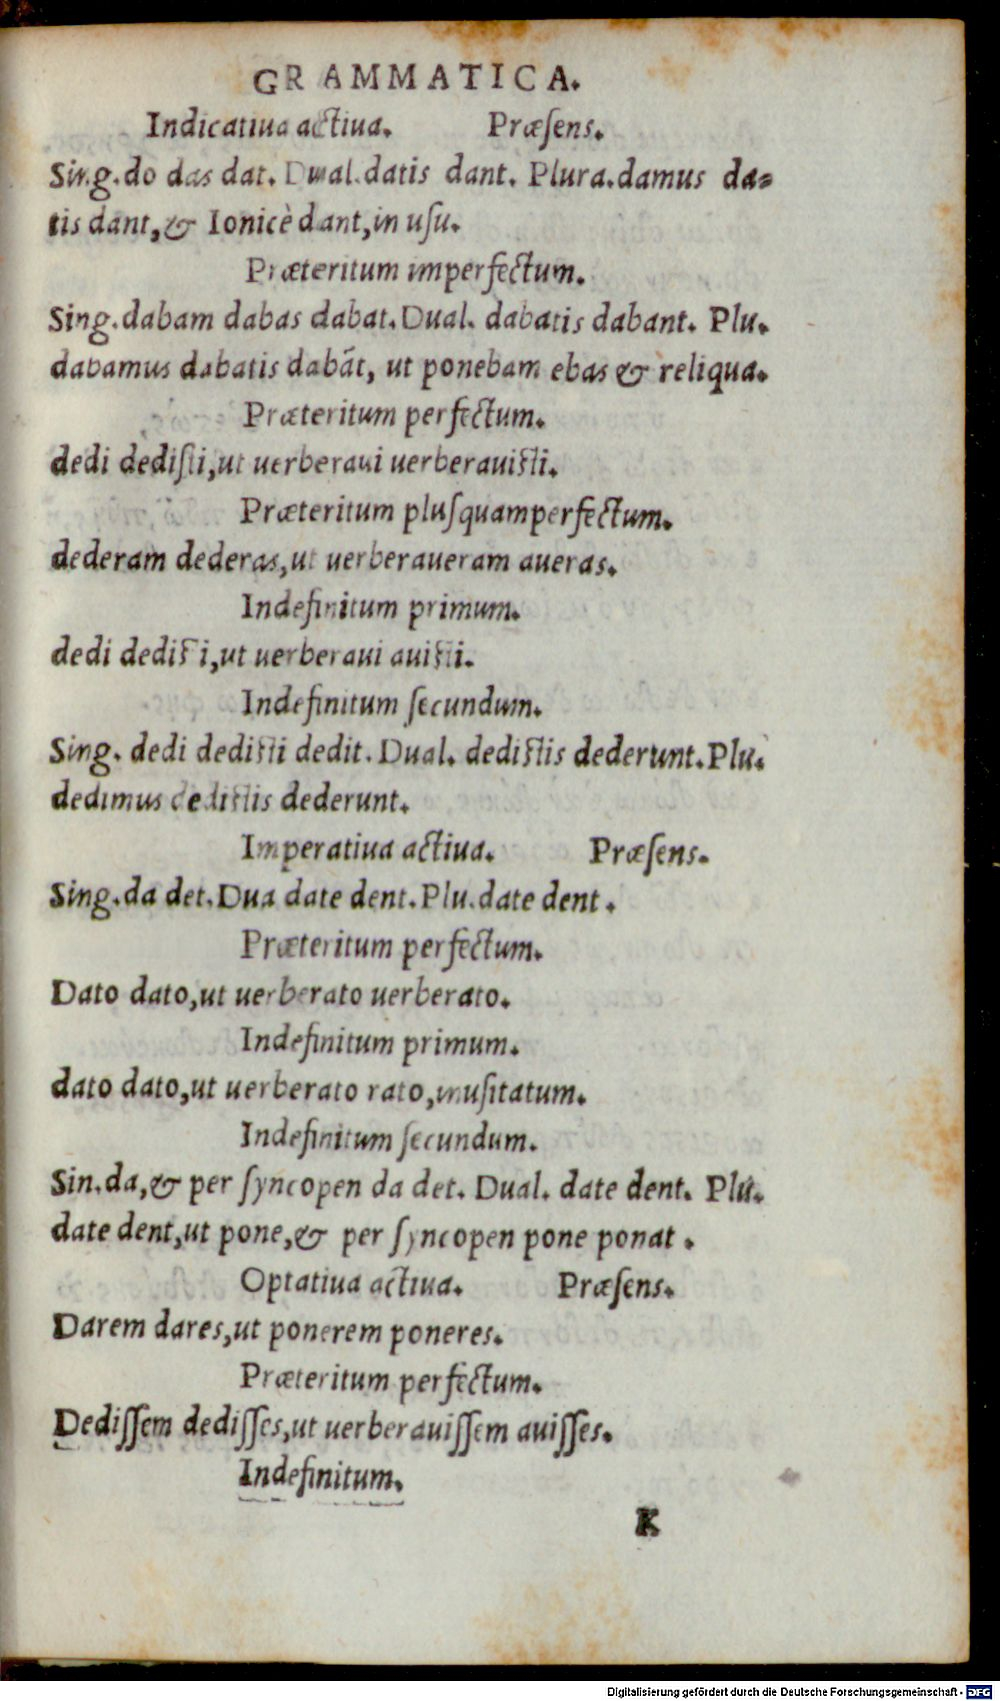 GRAMMATICA.
Indicatiua actiua. Præſens.
Sing.do das dat. Dual.datis dant. Plura.damus da⸗
tis dant,& Ionicè dant,in uſu.
Præteritum imperfectum.
Sing.dabam dabas dabat.Dual. dabatis dabant. Plu.
dabamus dabatis dabāt, ut ponebam ebas & reliqua.
Præteritum perfectum.
dedi dediſti,ut uerberaui uerberauiſti.
Præteritum pluſquamperfectum.
dederam dederas,ut uerberaueram aueras.
Indefinitum primum.
dedi dediſti,ut uerberaui auiſti.
Indefinitum ſecundum.
Sing. dedi dediſti dedit. Dual. dediſtis dederunt.Plu.
dedimus dediſtis dederunt.
Imperatiua actiua. Præſens.
Sing.da det.Dua date dent.Plu.date dent.
Præteritum perfectum.
Dato dato,ut uerberato uerberato.
Indefinitum primum.
dato dato,ut uerberato rato,inuſitatum.
Indefinitum ſecundum.
Sin.da,& per ſyncopen da det. Dual. date dent. Plu.
date dent,ut pone,& per ſyncopen pone ponat.
Optatiua actiua. Præſens.
Darem dares,ut ponerem poneres.
Præteritum perfectum.
Dediſſem dediſſes,ut uerberauiſſem auiſſes.
Indefinitum.
K
Digitalisierung gefördert durch die Deutsche Forschungsgemeinschaft - DFG